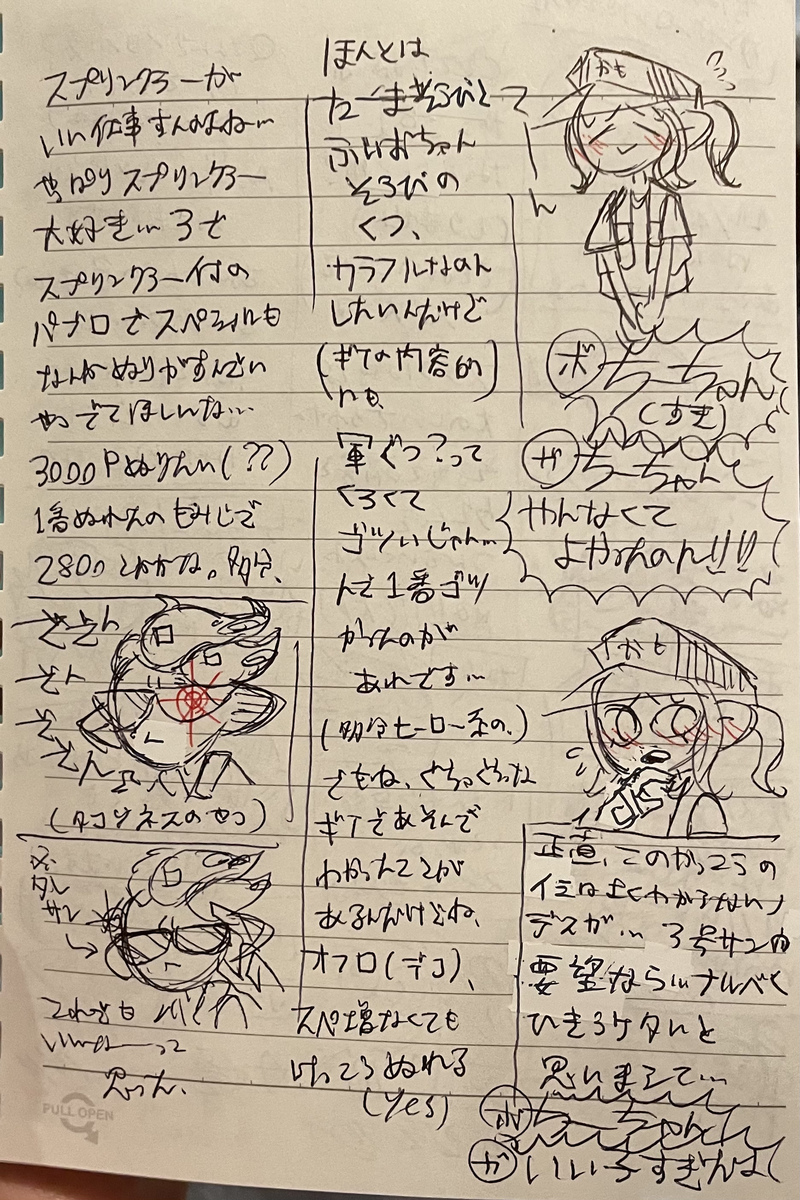 スプリンクラーが
いい仕事すんのよね…
やっぱりスプリンクラー
大好き… うで
スプリンクラー付の
パブロでスペシャルも
なんかぬりがすんごい
やつ でてほしいな…
3000Pぬりたい(??)
1番ぬれたのもみじで
2800とかかな。多分、
(タコツネスのやつ)
これでも
いいなーって
思った、
PULL OPEN
ほんとは
たーまそろびとて
ふいおちゃん
そろびの
くつ、
カラフルなのん
したいんだけど
(ギアの内容的
にも
軍ぐつ?って
くろくて
ゴツいじゃん…
んで1番ゴツ
かったのが
あれです…
(多分ヒーロー系の、)
でもね、ぐちゃぐちゃな
ギアであそんで
わかったことが
あるんだけどね、
オフロ(デコ)、
スペ増なくても
けっこうぬれる
(Yes)
かも
ボ ちーちゃん
(すき)
ガ ちーちゃん
やんなくて
よかったのん!!!
かも
正直、このかっこうの
イミはよくわからない
デスガ… 3号サンの
要望なら…ナルベく
ひきうケタいと
思いまして…
ボ ちーちゃん
ガ いい子すぎんよ